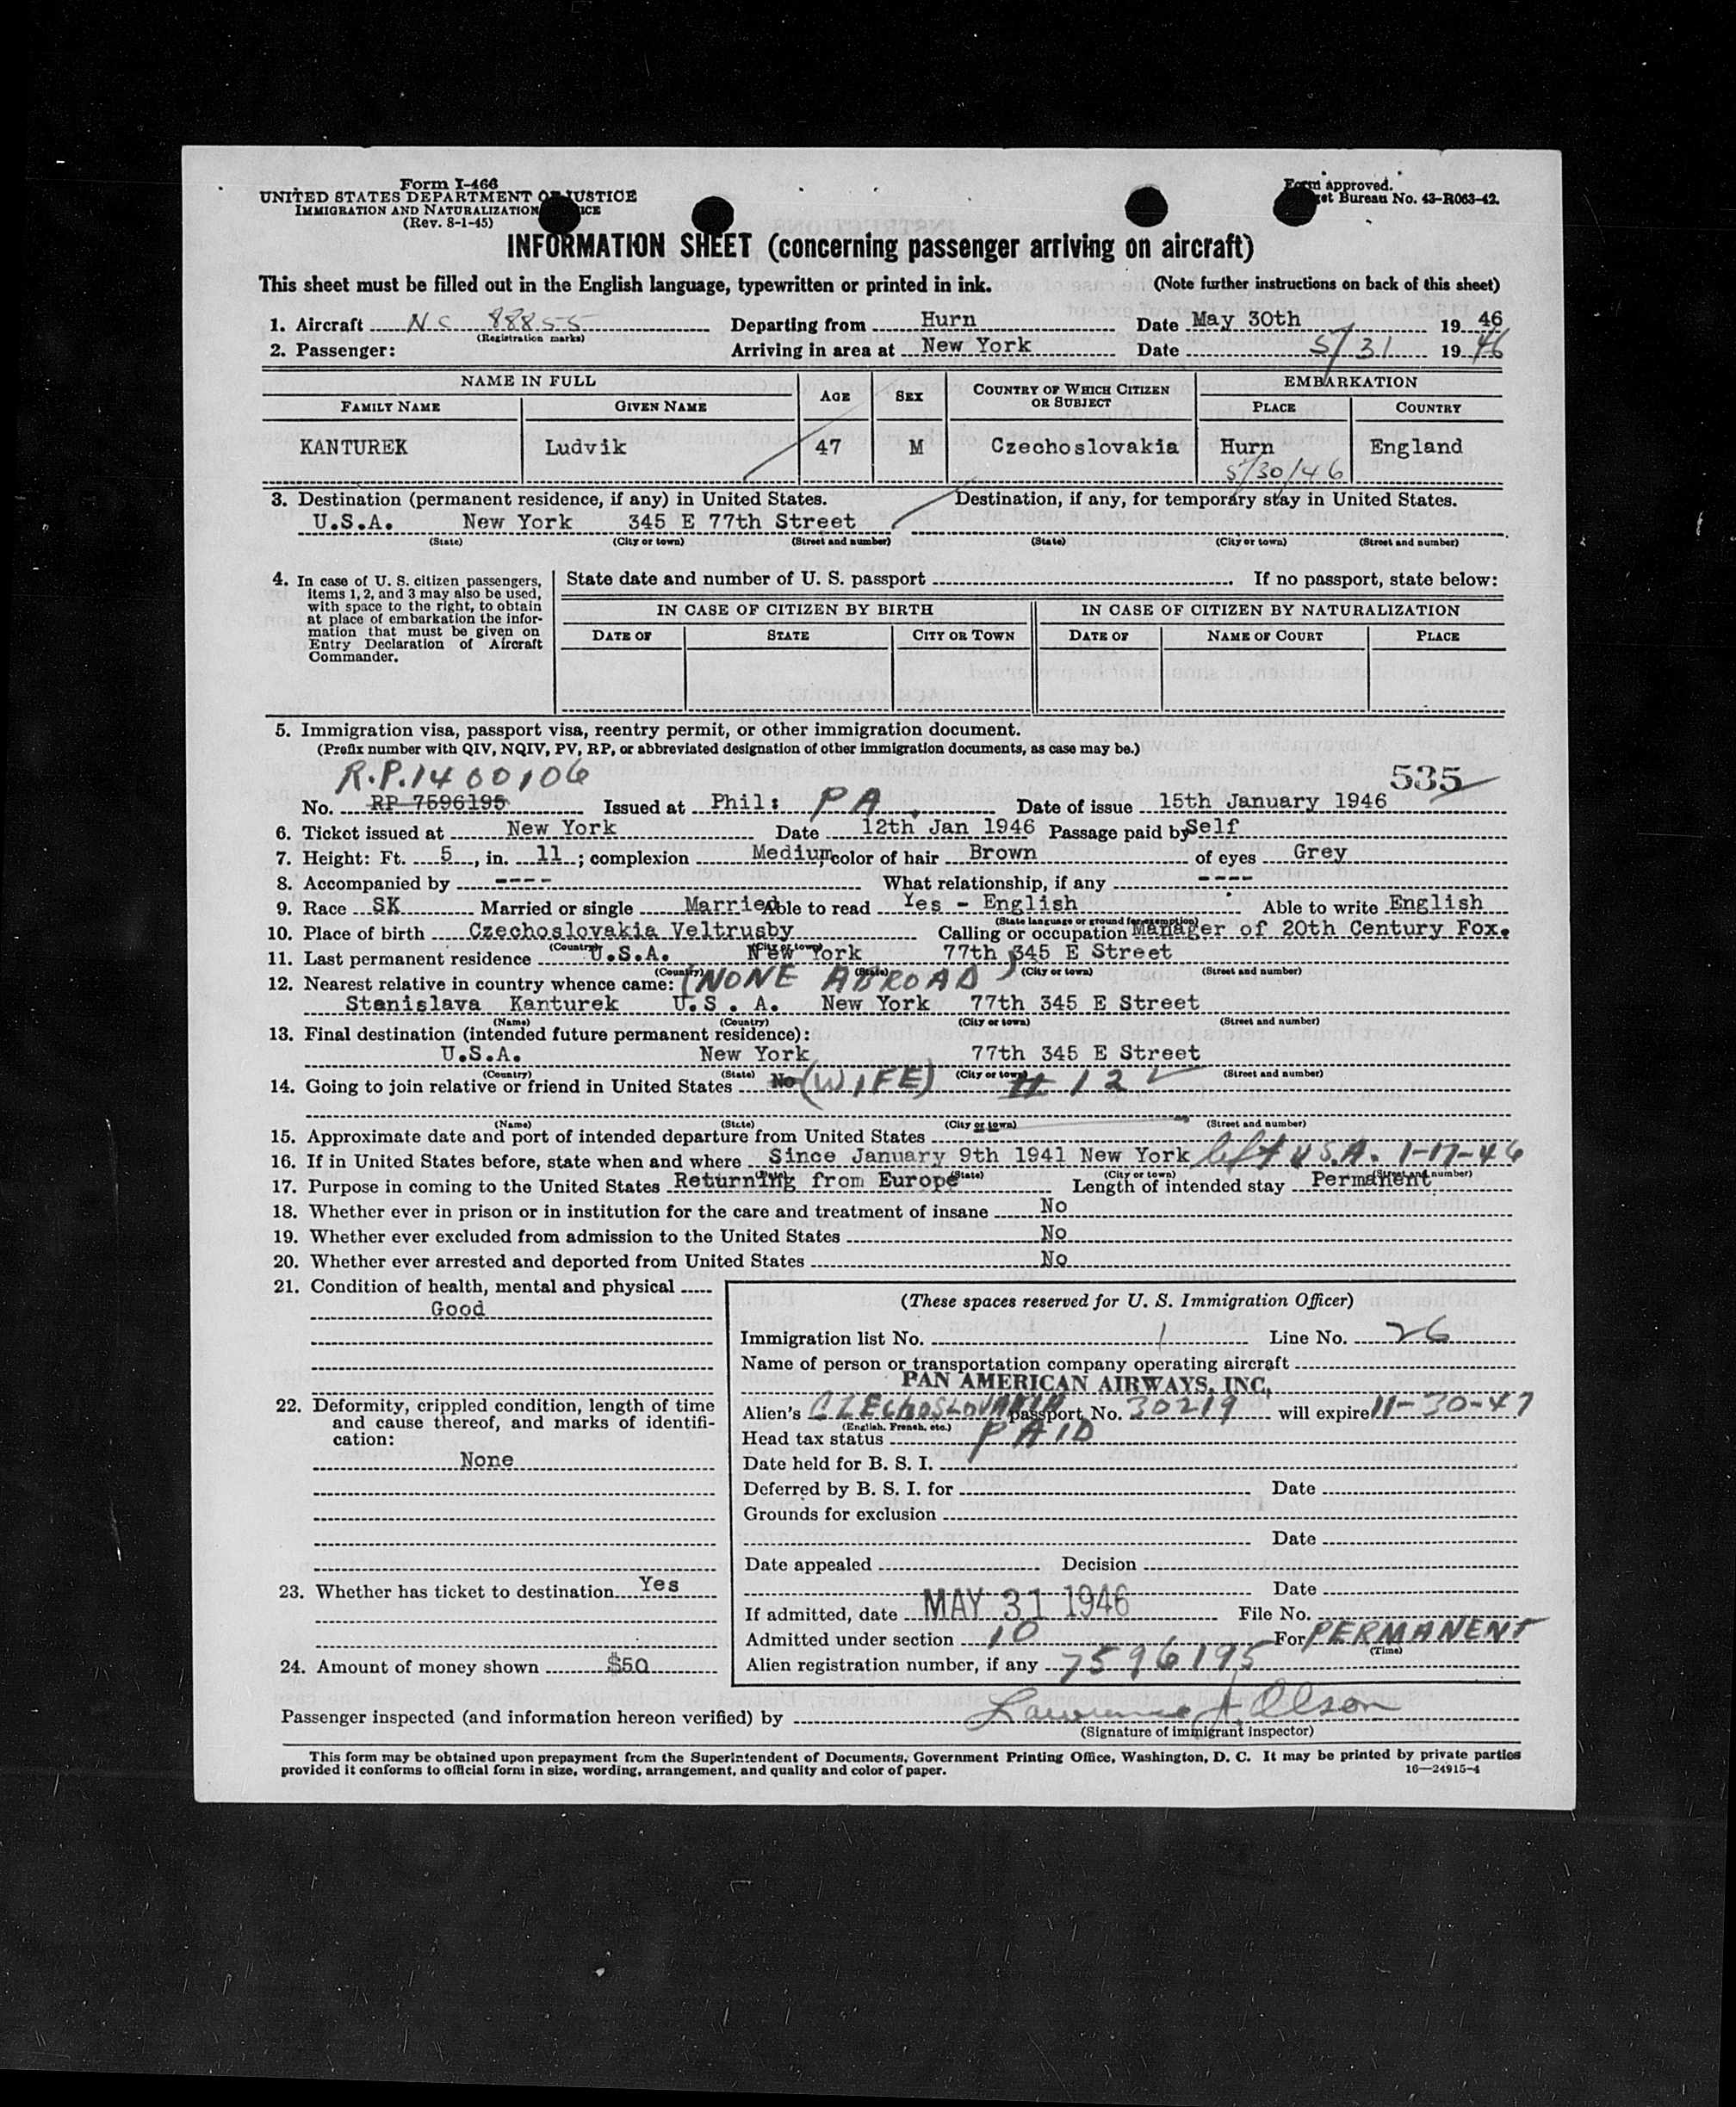 Form I-466
UNITED STATES DEPARTMENT OF JUSTICE
IMMIGRATION AND NATURALIZATION
(Rev. 8-1-45)
Form approved.
Bureau No. 43-R063-42.
INFORMATION SHEET (concerning passenger arriving on aircraft)
This sheet must be filled out in the English language, typewritten or printed in ink. (Note further instructions on back of this sheet)
1. Aircraft NC 88855 Departing from Hurn Date May 30th 1946
(Registration marks)
2. Passenger: Arriving in area at New York Date 5/31 1946
NAME IN FULL AGE SEX COUNTRY OF WHICH CITIZEN OR SUBJECT EMBARKATION
FAMILY NAME GIVEN NAME PLACE COUNTRY
KANTUREK Ludvik 47 M Czechoslovakia Hurn England
5/30/46
3. Destination (permanent residence, if any) in United States. Destination, if any, for temporary stay in United States.
U.S.A. New York 345 E 77th Street
(State) (City or town) (Street and number) (State) (City or town) (Street and number)
4. In case of U. S. citizen passengers, items 1, 2, and 3 may also be used, with space to the right, to obtain at place of embarkation the information that must be given on Entry Declaration of Aircraft Commander.
State date and number of U. S. passport If no passport, state below:
IN CASE OF CITIZEN BY BIRTH IN CASE OF CITIZEN BY NATURALIZATION
DATE OF STATE CITY OR TOWN DATE OF NAME OF COURT PLACE
5. Immigration visa, passport visa, reentry permit, or other immigration document.
(Prefix number with QIV, NQIV, PV, RP, or abbreviated designation of other immigration documents, as case may be.)
R.P.1400106 535
No. RP 7596195 Issued at Phil: PA. Date of issue 15th January 1946
6. Ticket issued at New York Date 12th Jan 1946 Passage paid by Self
7. Height: Ft. 5, in. 11; complexion Medium, color of hair Brown of eyes Grey
8. Accompanied by ---- What relationship, if any ----
9. Race SK Married or single Married Able to read Yes - English Able to write English
(State language or ground for exemption)
10. Place of birth Czechoslovakia Veltrusby Calling or occupation Manager of 20th Century Fox.
(Country) (City or town)
11. Last permanent residence U.S.A. New York 77th 345 E Street
(Country) (State) (City or town) (Street and number)
12. Nearest relative in country whence came: (NONE ABROAD)
Stanislava Kanturek U.S.A. New York 77th 345 E Street
(Name) (Country) (City or town) (Street and number)
13. Final destination (intended future permanent residence):
U.S.A. New York 77th 345 E Street
(Country) (State) (City or town) (Street and number)
14. Going to join relative or friend in United States No (WIFE) # 12
(Name) (State) (City or town) (Street and number)
15. Approximate date and port of intended departure from United States
16. If in United States before, state when and where Since January 9th 1941 New York left U.S.A. 1-17-46
(Date) (State) (City or town) (Street and number)
17. Purpose in coming to the United States Returning from Europe Length of intended stay Permanent
18. Whether ever in prison or in institution for the care and treatment of insane No
19. Whether ever excluded from admission to the United States No
20. Whether ever arrested and deported from United States No
21. Condition of health, mental and physical
Good
22. Deformity, crippled condition, length of time and cause thereof, and marks of identification:
None
23. Whether has ticket to destination Yes
24. Amount of money shown $50
(These spaces reserved for U. S. Immigration Officer)
Immigration list No. 1 Line No. 26
Name of person or transportation company operating aircraft
PAN AMERICAN AIRWAYS, INC.
Alien's CZECHOSLOVAKIA passport No. 30219 will expire 11-30-47
(English, French, etc.)
Head tax status PAID
Date held for B. S. I.
Deferred by B. S. I. for Date
Grounds for exclusion
Date
Date appealed Decision
Date
If admitted, date MAY 31 1946 File No.
Admitted under section 10 For PERMANENT
(Time)
Alien registration number, if any 7596195
Passenger inspected (and information hereon verified) by Lawrence A. Olson
(Signature of immigrant inspector)
This form may be obtained upon prepayment from the Superintendent of Documents, Government Printing Office, Washington, D. C. It may be printed by private parties
provided it conforms to official form in size, wording, arrangement, and quality and color of paper. 16—24915-4